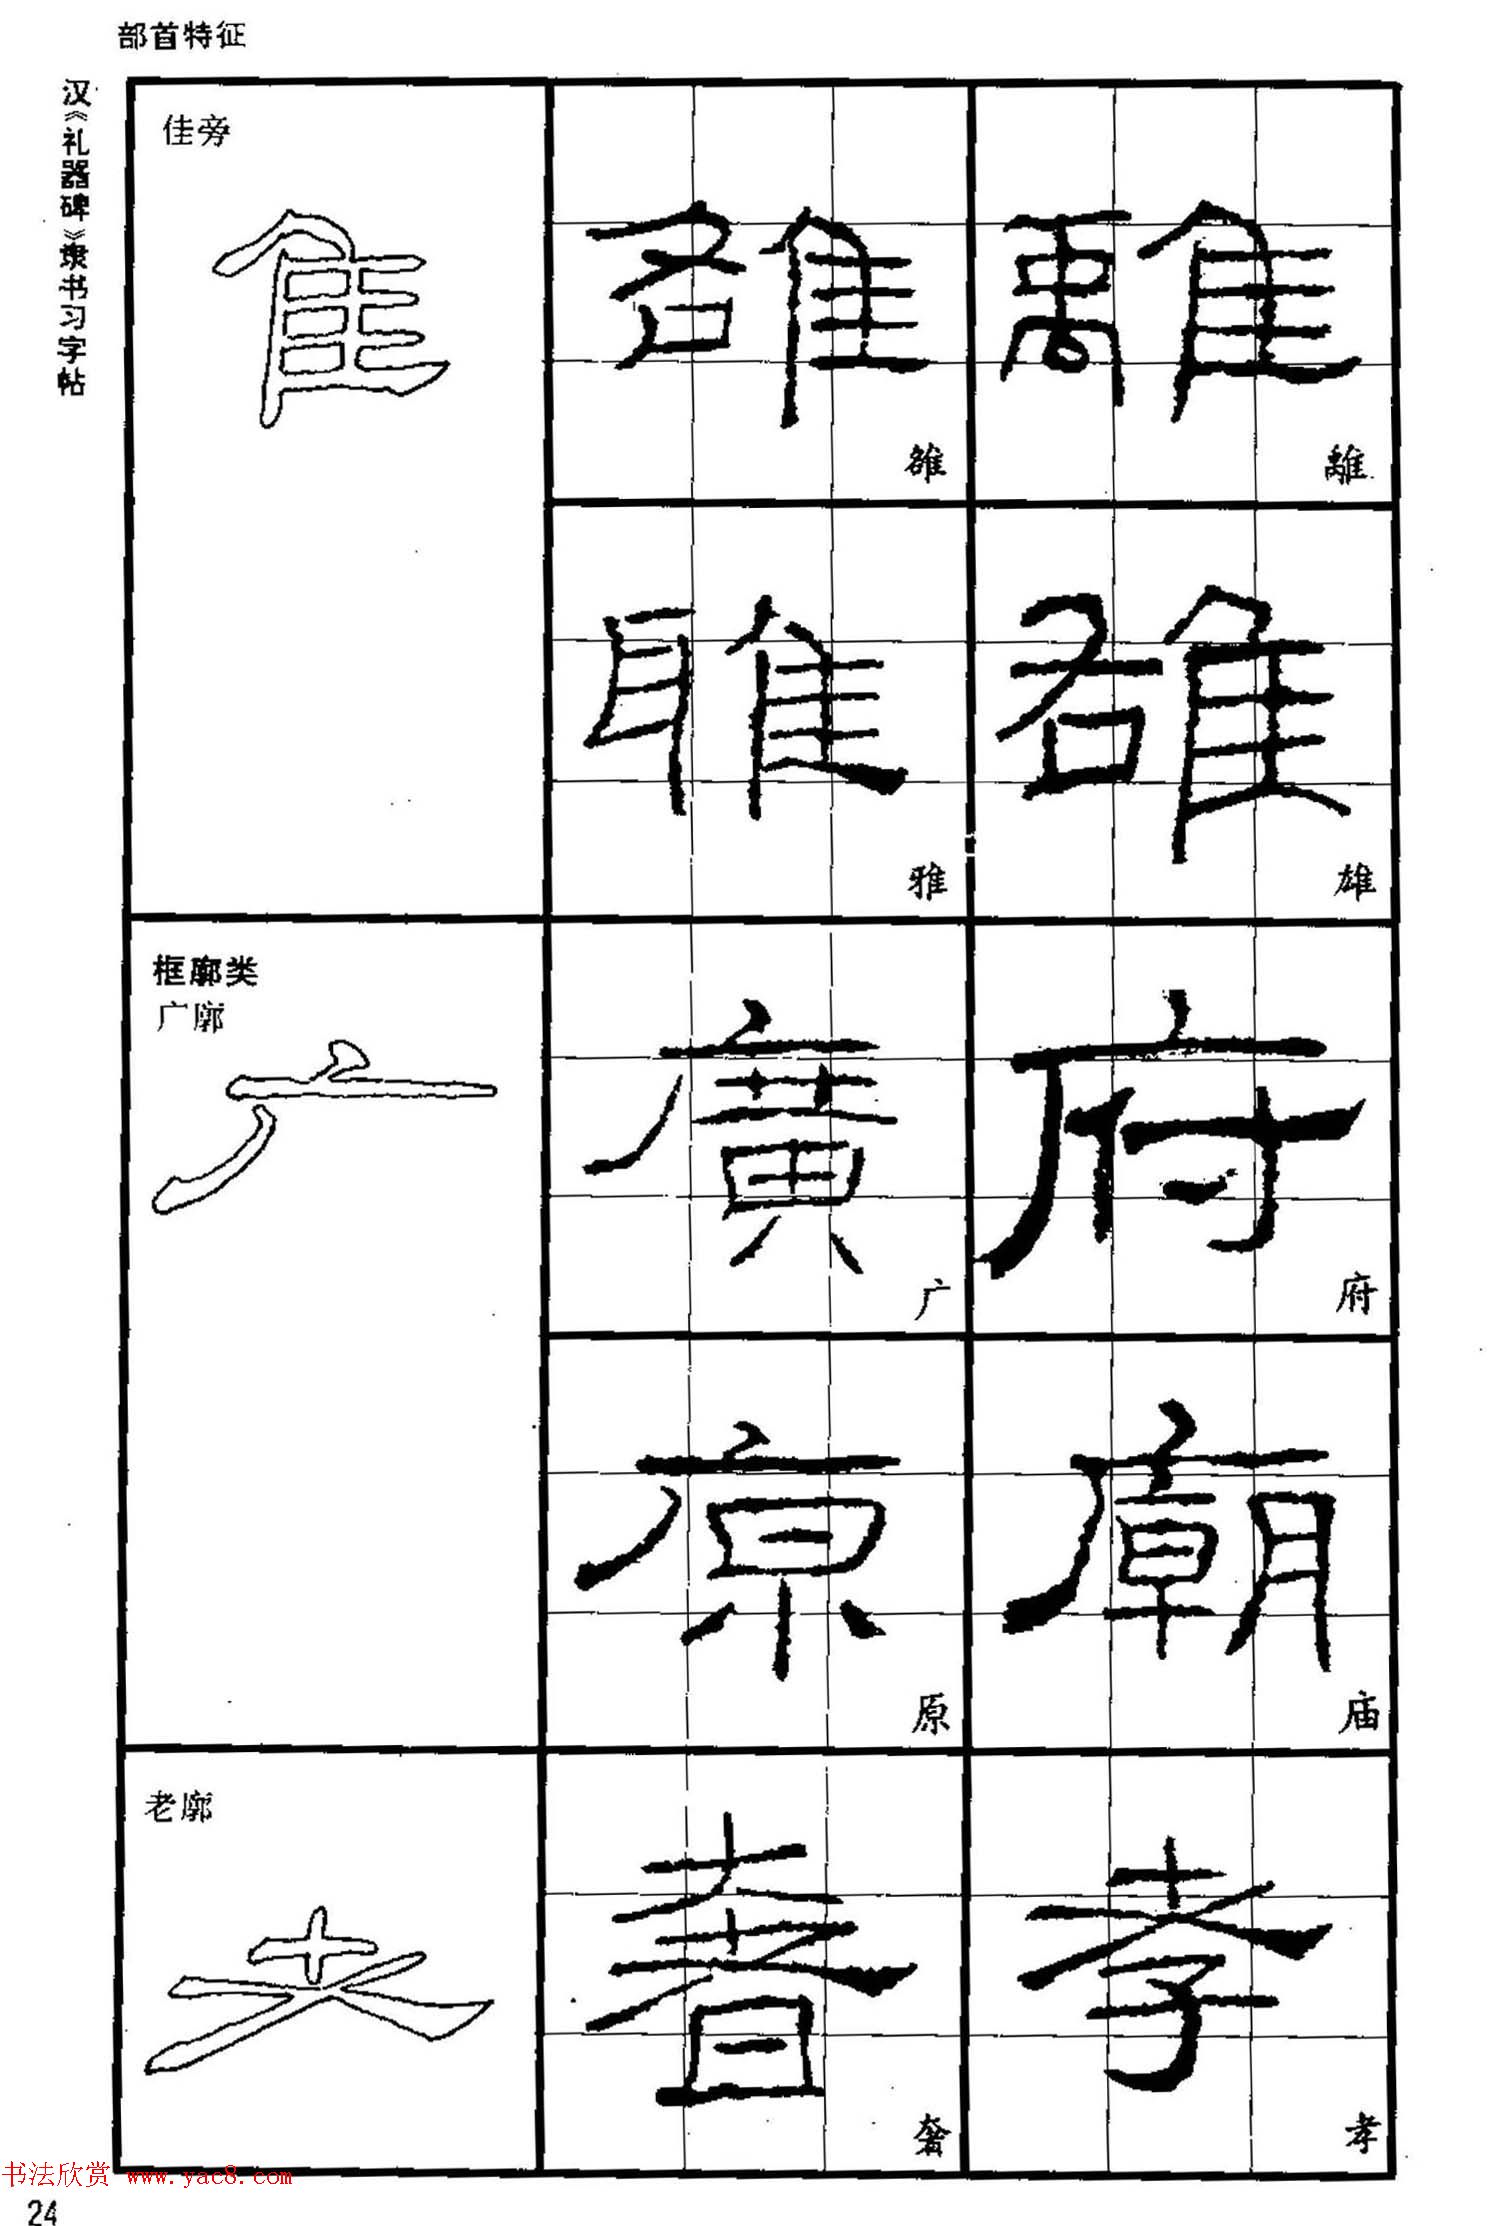 部首特征
汉《礼器碑》隶书习字帖
佳旁
雒
離
雅
雄
框廓类
广廓
广
府
原
庙
老廓
奢
孝
书法欣赏 www.yac8.com
24